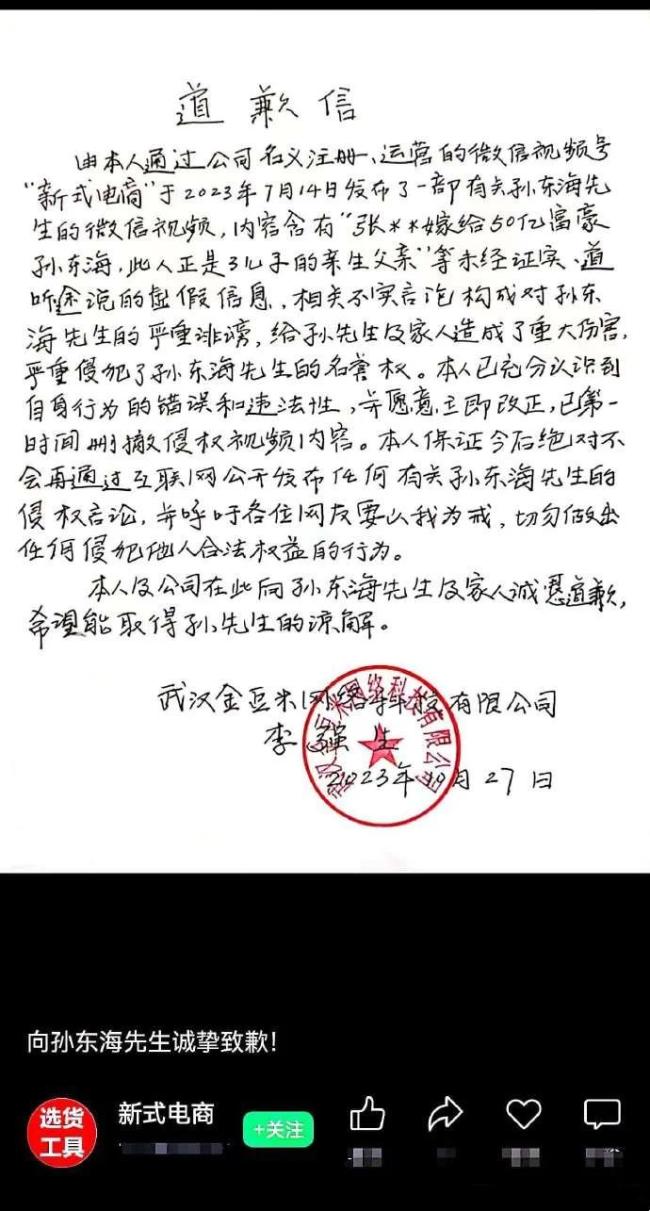 道歉信
由本人通过公司名义注册、运营的微信视频号
“新式电商”于2023年7月14日发布了一部有关孙东海先
生的微信视频，内容含有“张**嫁给50亿富豪
孙东海，此人正是3儿子的亲生父亲”等未经证实、道
听途说的虚假信息，相关不实言论构成对孙东
海先生的严重诽谤，给孙先生及家人造成了重大伤害，
严重侵犯了孙东海先生的名誉权。本人已充分认识到
自身行为的错误和违法性，并愿意立即改正，已第一
时间删撤侵权视频内容。本人保证今后绝对不
会再通过互联网公开发布任何有关孙东海先生的
侵权言论，并呼吁各位网友要以我为戒，切勿做出
任何侵犯他人合法权益的行为。
本人及公司在此向孙东海先生及家人诚恳道歉，
希望能取得孙先生的谅解。
武汉金豆米网络科技有限公司
李强生
2023年10月27日
向孙东海先生诚挚致歉!
选货
工具
新式电商
+关注